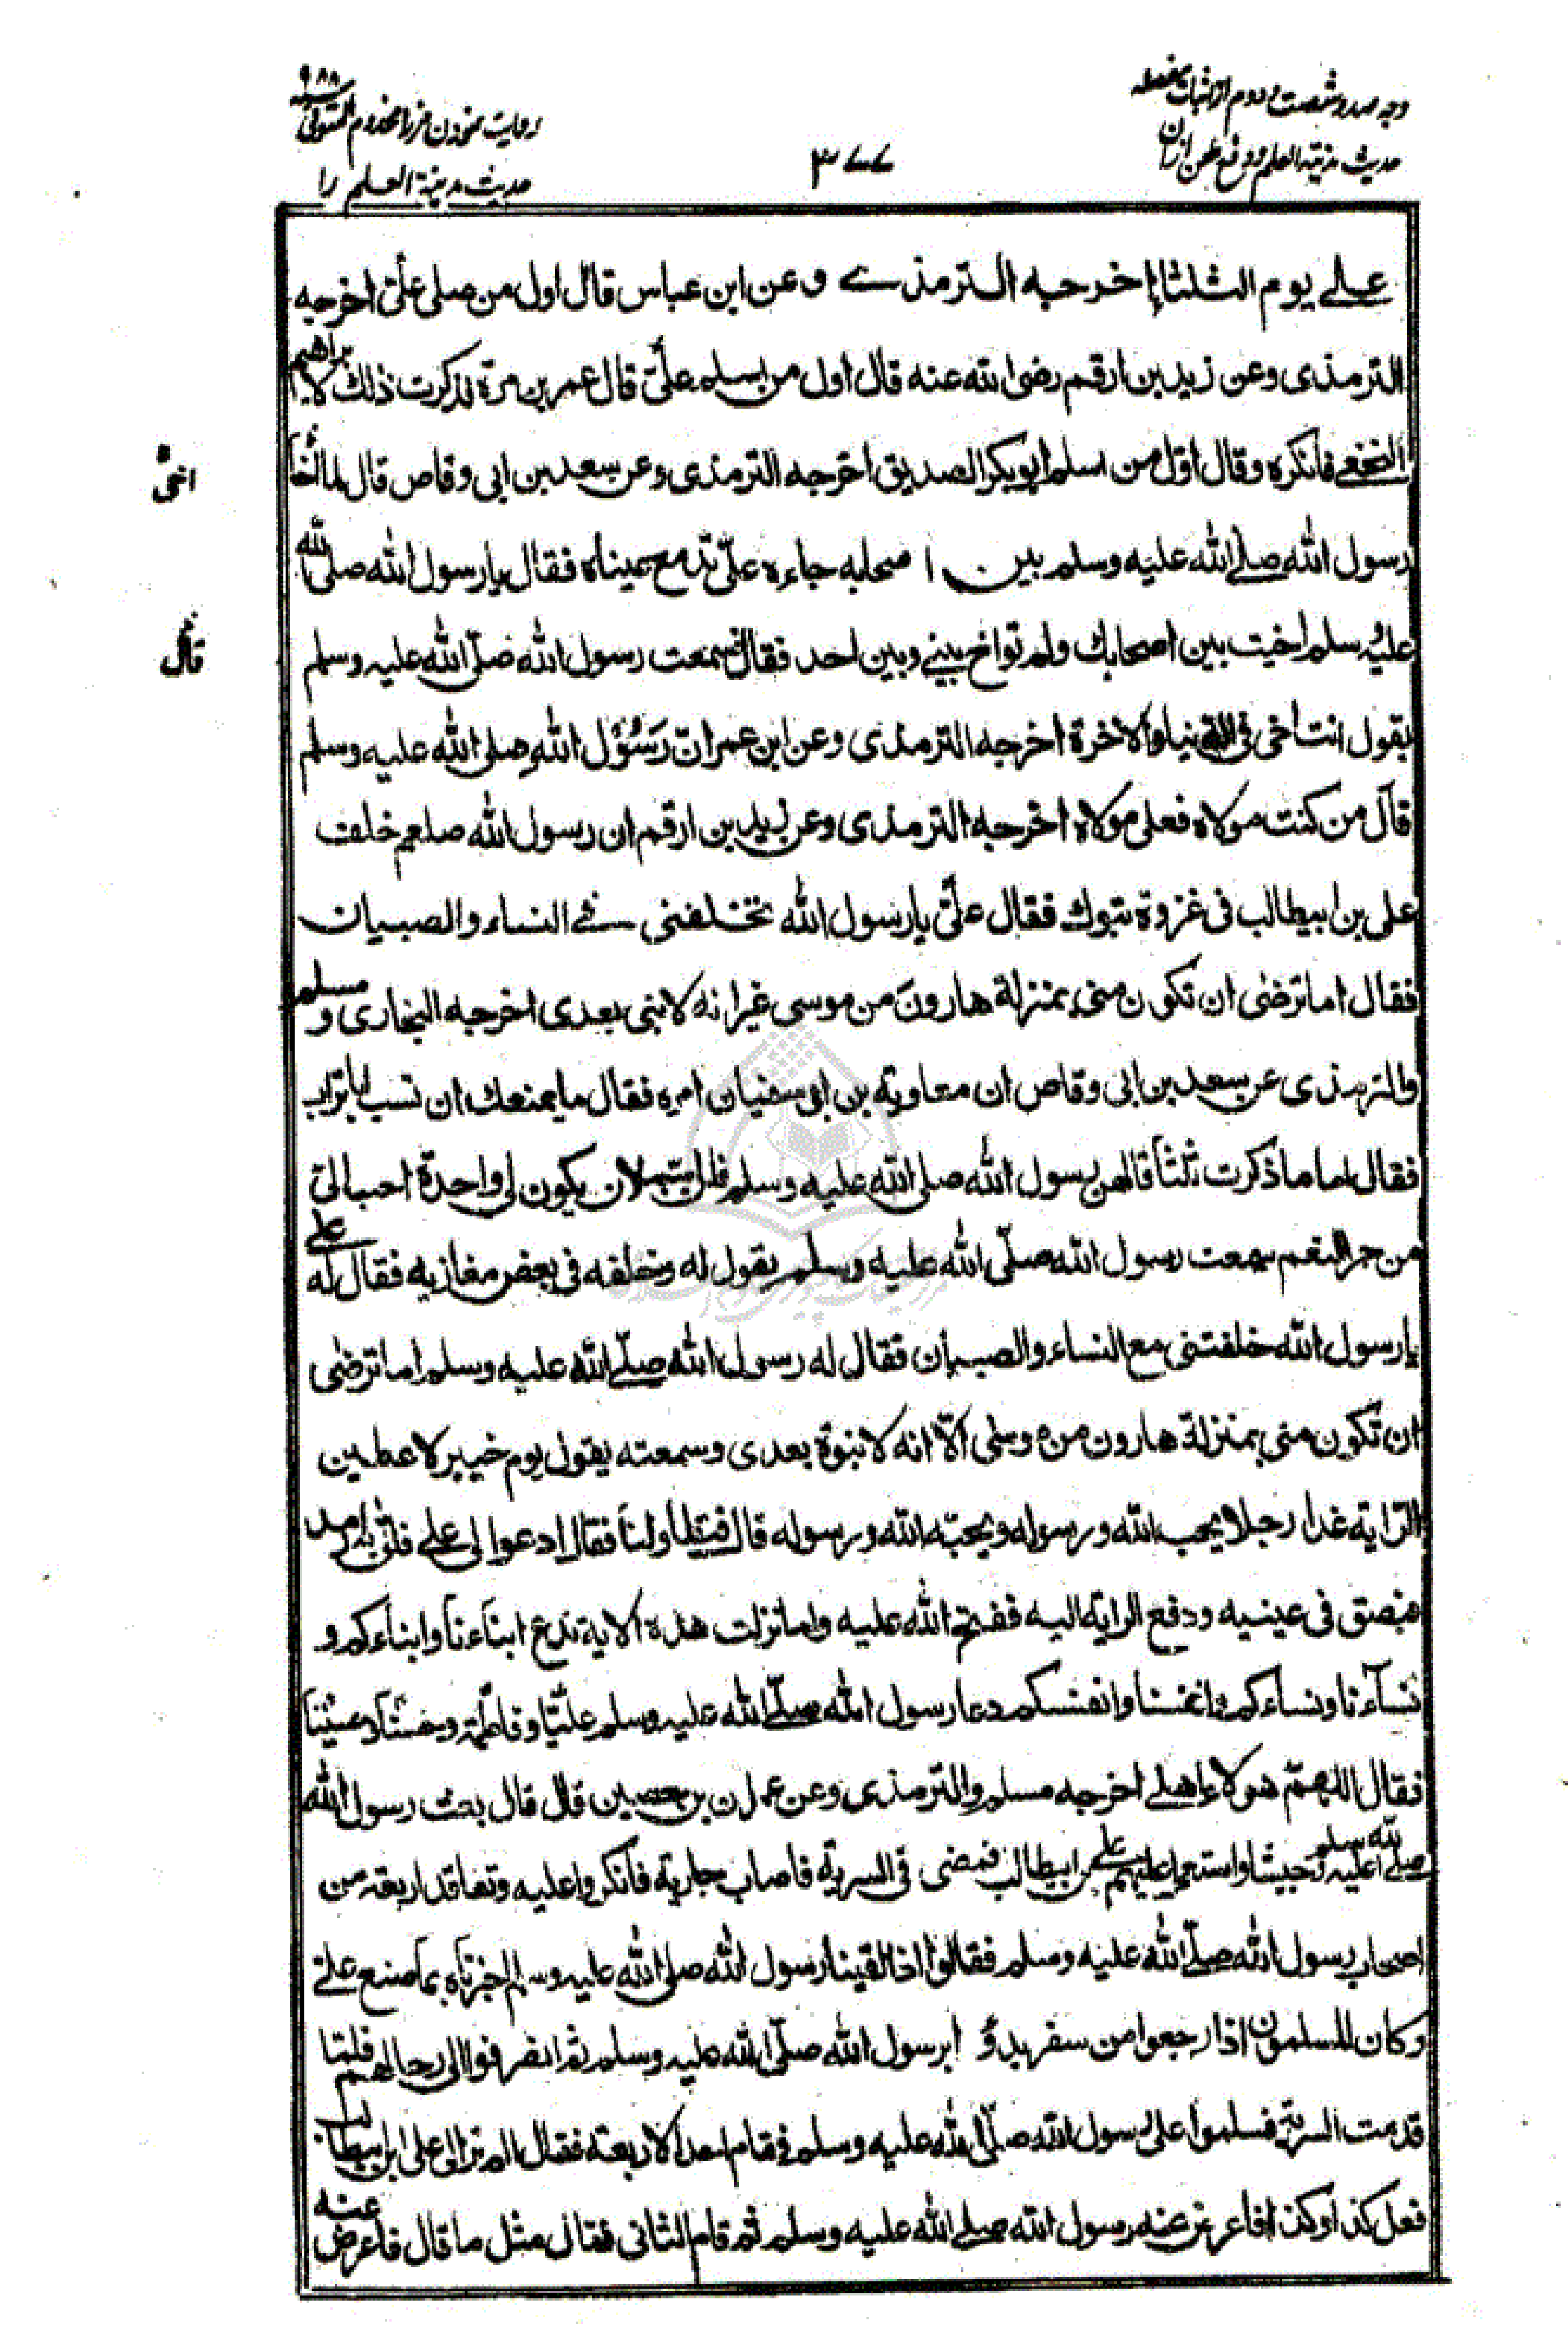 وجه صد و شصت و دوم از اثبات مفصله
حدیث مدینة العلم و دفع طعن ازان
٣٧٧
روایت نمودن میرزا مخدوم المتوفی سنه ٩٨٨
حدیث مدینة العلم را
علے یوم الثلثا اخرجه الترمذے وعن ابن عباس قال اول من صلی علیّ اخرجه
الترمذی وعن زید بن ارقم رضی الله عنه قال اول من اسلم علیّ قال عمر بن مرة فذكرت ذلك لابراهیم
النخعی فانكره وقال اوّل من اسلم ابوبكر الصدیق اخرجه الترمذی وعن سعد بن ابی وقاص قال لما اٰخا
اخیٰ
رسول الله صلے الله علیه وسلم بین اصحابه جاءه علیّ تدمع عیناه فقال یارسول الله صلی الله
علیه وسلم اٰخیت بین اصحابك ولم تواخ بینے وبین احد فقال فسمعت رسول الله صلّی الله علیه وسلم
قال
یقول انت اخی فی الدنیا والاخرة اخرجه الترمذی وعن ابن عمر انّ رَسُوْل الله صلی الله علیه وسلم
قال من كنت مولاه فعلی مولاه اخرجه الترمذی وعن زید بن ارقم ان رسول الله صلعم خلف
علی بن ابیطالب فی غزوة تبوك فقال علیّ یارسول الله تخلفنی فے النساء والصبیان
فقال اما ترضٰی ان تكون منی بمنزلة هارونَ من موسی غیر انه لا نبی بعدی اخرجه البخاری و مسلم
والترمذی عن سعد بن ابی وقاص ان معاویة بن ابی سفیان امره فقال ما یمنعك ان تسب اباتراب
فقال اما ما ذكرت ثلثاً قالهن رسول الله صلی الله علیه وسلم فلن اسبّه لان یكون لی واحدة احب الیّ
من حمر النعم سمعت رسول الله صلّی الله علیه وسلم یقول له وخلفه فی بعض مغازیه فقال له علے
یارسول الله خلفتنی مع النساء والصبیان فقال له رسول الله صلّے الله علیه وسلم اما ترضٰی
ان تكون منی بمنزلة هارون من موسٰی الّا انه لا نبوة بعدی وسمعته یقول یوم خیبر لاعطین
الرّایة غدا رجلا یحب الله ورسوله ویحبّه الله ورسوله قال فتطاولنا فقال ادعوا لی علے فاتی به ارمد
فبصق فی عینیه ودفع الرایة الیه ففتح الله علیه ولما نزلت هذه الایة ندع ابناءنا وابناءكم و
نساءنا ونساءكم وانفسنا وانفسكم دعا رسول الله صلّے الله علیه وسلم علیّا وفاطمة وحسنا وحسینا
فقال اللهمّ هولاء اهلے اخرجه مسلم والترمذی وعن عمران بن حصین قال قال بعث رسول الله
صلے الله علیه وسلم جیشا واستعمل علیهم علے بن ابیطالب فمضی فی السریة فاصاب جاریة فانكروا علیه وتعاقد اربعة من
اصحاب رسول الله صلّے الله علیه وسلم فقالوا اذا لقینا رسول الله صلی الله علیه وسلم اخبرناه بما صنع علے
وكان المسلمون اذا رجعوا من سفر بدؤ ابرسول الله صلّی الله علیه وسلم ثم انصرفوا الی رحالهم فلما
قدمت السریة فسلموا علی رسول الله صلّی الله علیه وسلم فقام احد الاربعة فقال الم تر الی علی ابن ابیطالب
فعل كذا وكذا فاعرض عنه رسول الله صلے الله علیه وسلم ثم قام الثانی فقال مثل ما قال فاعرض عنه